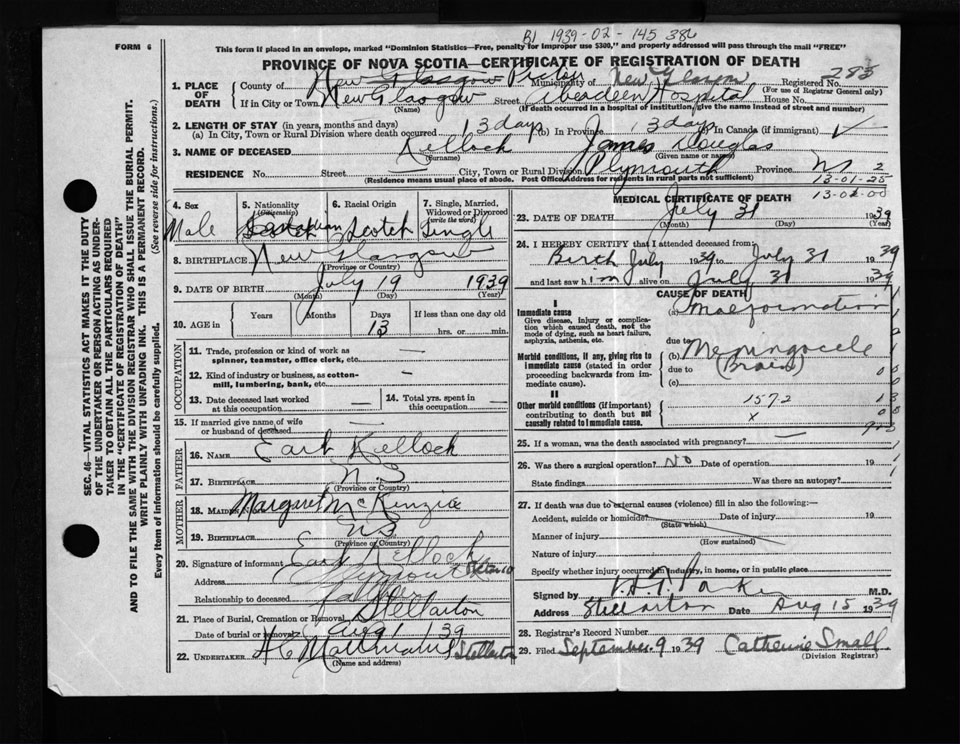 BI 1939-02-145 386
FORM 6
This form if placed in an envelope, marked "Dominion Statistics—Free, penalty for improper use $300," and properly addressed will pass through the mail "FREE"
PROVINCE OF NOVA SCOTIA—CERTIFICATE OF REGISTRATION OF DEATH
1. PLACE OF DEATH
County of New Glasgow Pictou Municipality of New Glasgow Registered No. 283
(For use of Registrar General only)
If in City or Town New Glasgow Street Aberdeen Hospital House No.
(Name) (If death occurred in a hospital of institution, give the name instead of street and number)
2. LENGTH OF STAY (in years, months and days)
(a) In City, Town or Rural Division where death occurred 13 days (b) In Province 13 days (c) In Canada (if immigrant)
3. NAME OF DECEASED Kellock James Douglas
(Surname) (Given name or names)
RESIDENCE No. Street City, Town or Rural Division Plymouth Province N.S. 2
(Residence means usual place of abode. Post Office Address for residents in rural parts not sufficient)
13-01-25
13-02-00
4. Sex Male
5. Nationality (Citizenship) Canadian
6. Racial Origin Scotch
7. Single, Married, Widowed or Divorced (write the word) Single
8. BIRTHPLACE New Glasgow
(Province or Country)
9. DATE OF BIRTH July 19 1939
(Month) (Day) (Year)
10. AGE in Years Months Days If less than one day old
13 hrs. or min.
OCCUPATION
11. Trade, profession or kind of work as spinner, teamster, office clerk, etc. —
12. Kind of industry or business, as cotton-mill, lumbering, bank, etc. —
13. Date deceased last worked at this occupation —
14. Total yrs. spent in this occupation —
15. If married give name of wife or husband of deceased
FATHER
16. NAME Earl Kellock
17. BIRTHPLACE N.S
(Province or Country)
MOTHER
18. MAIDEN NAME Margaret McKenzie
19. BIRTHPLACE N.S
(Province or Country)
20. Signature of informant Earl Kellock
Address Plymouth
Relationship to deceased father
21. Place of Burial, Cremation or Removal Stellarton
Date of burial or removal Aug 1 1939
22. UNDERTAKER Stellarton
(Name and address)
MEDICAL CERTIFICATE OF DEATH
23. DATE OF DEATH July 31 1939
(Month) (Day) (Year)
24. I HEREBY CERTIFY that I attended deceased from:
Birth July 1939 to July 31 1939
and last saw him alive on July 31 1939
CAUSE OF DEATH
I
Immediate cause
Give disease, injury or complication which caused death, not the mode of dying, such as heart failure, asphyxia, asthenia, etc.
(a) Malformation
due to
Morbid conditions, if any, giving rise to immediate cause (stated in order proceeding backwards from immediate cause).
(b) Meningocele
due to (Brain)
(c)
II
Other morbid conditions (if important) contributing to death but not causally related to immediate cause.
1572
x
25. If a woman, was the death associated with pregnancy? —
26. Was there a surgical operation? No Date of operation 19
State findings Was there an autopsy?
27. If death was due to external causes (violence) fill in also the following:—
Accident, suicide or homicide? Date of injury 19
(State which)
Manner of injury
(How sustained)
Nature of injury
Specify whether injury occurred in industry, in home, or in public place
Signed by M.D.
Address Stellarton Date Aug 15 1939
28. Registrar's Record Number
29. Filed September 9 1939 Catherine Small
(Division Registrar)
SEC. 46—VITAL STATISTICS ACT MAKES IT THE DUTY OF THE UNDERTAKER OR PERSON ACTING AS UNDERTAKER TO OBTAIN ALL THE PARTICULARS REQUIRED IN THE "CERTIFICATE OF REGISTRATION OF DEATH" AND TO FILE THE SAME WITH THE DIVISION REGISTRAR WHO SHALL ISSUE THE BURIAL PERMIT.
WRITE PLAINLY WITH UNFADING INK. THIS IS A PERMANENT RECORD.
Every item of information should be carefully supplied. (See reverse side for instructions.)